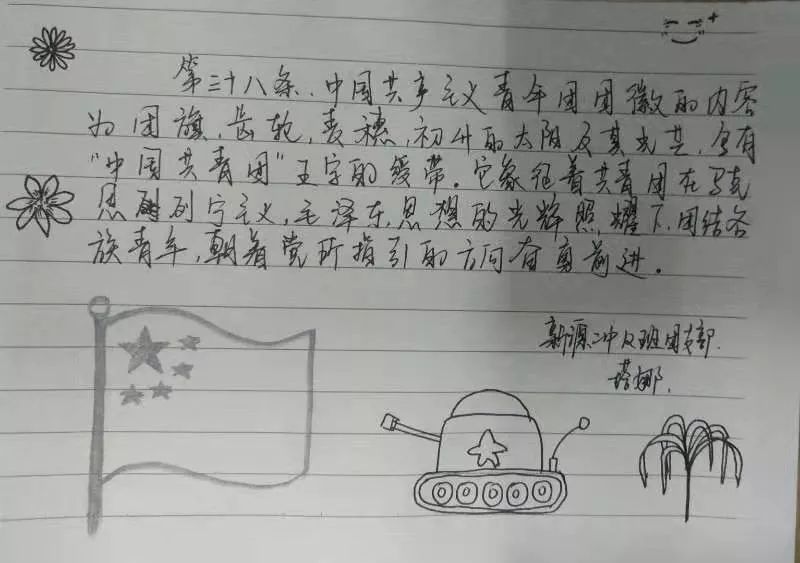 第三十八条，中国共产主义青年团团徽的内容
为团旗，齿轮，麦穗，初升的太阳及其光芒，写有
“中国共青团”五字的绶带。它象征着共青团在马克
思列宁主义，毛泽东思想的光辉照耀下，团结各
族青年，朝着党所指引的方向奋勇前进。
新源二中12班团支部
塔娜